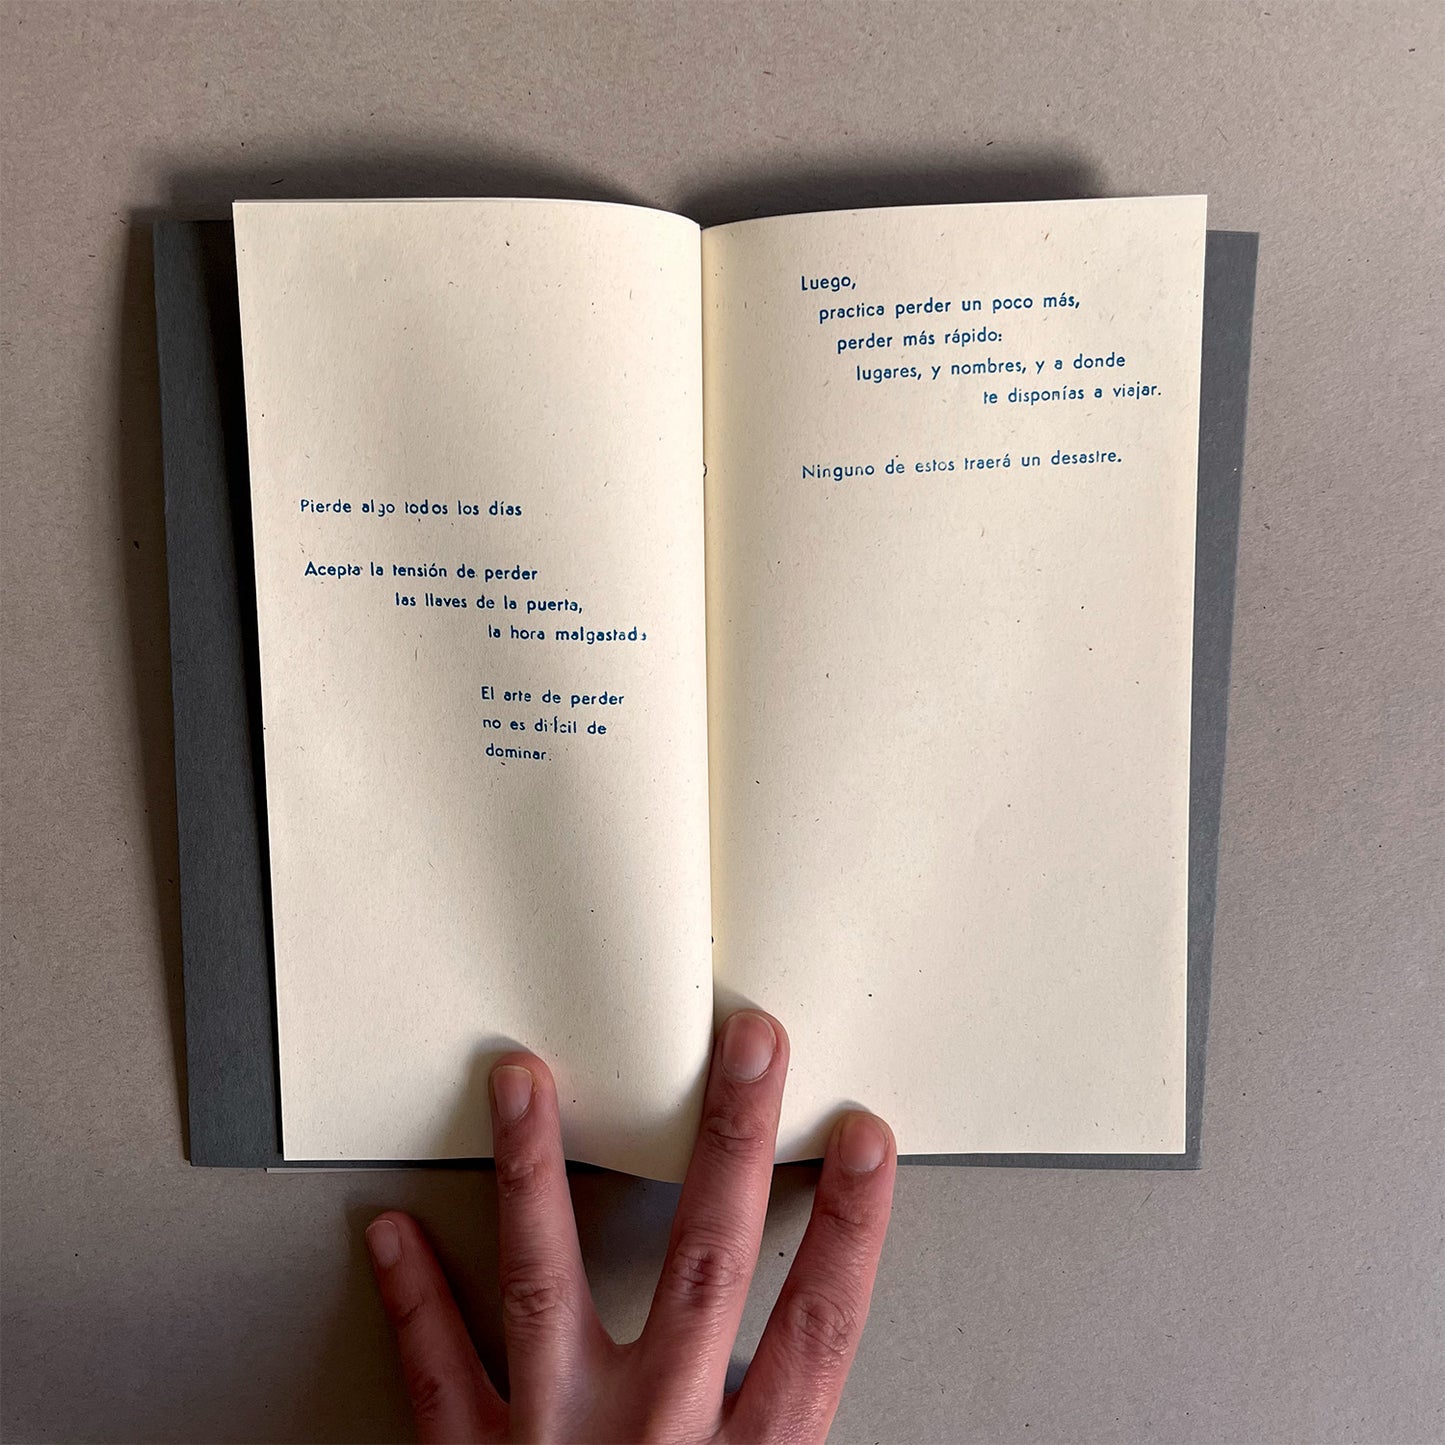 Pierde algo todos los días
Acepta la tensión de perder
las llaves de la puerta,
la hora malgastada
El arte de perder
no es difícil de
dominar.
Luego,
practica perder un poco más,
perder más rápido:
lugares, y nombres, y a donde
te disponías a viajar.
Ninguno de estos traerá un desastre.